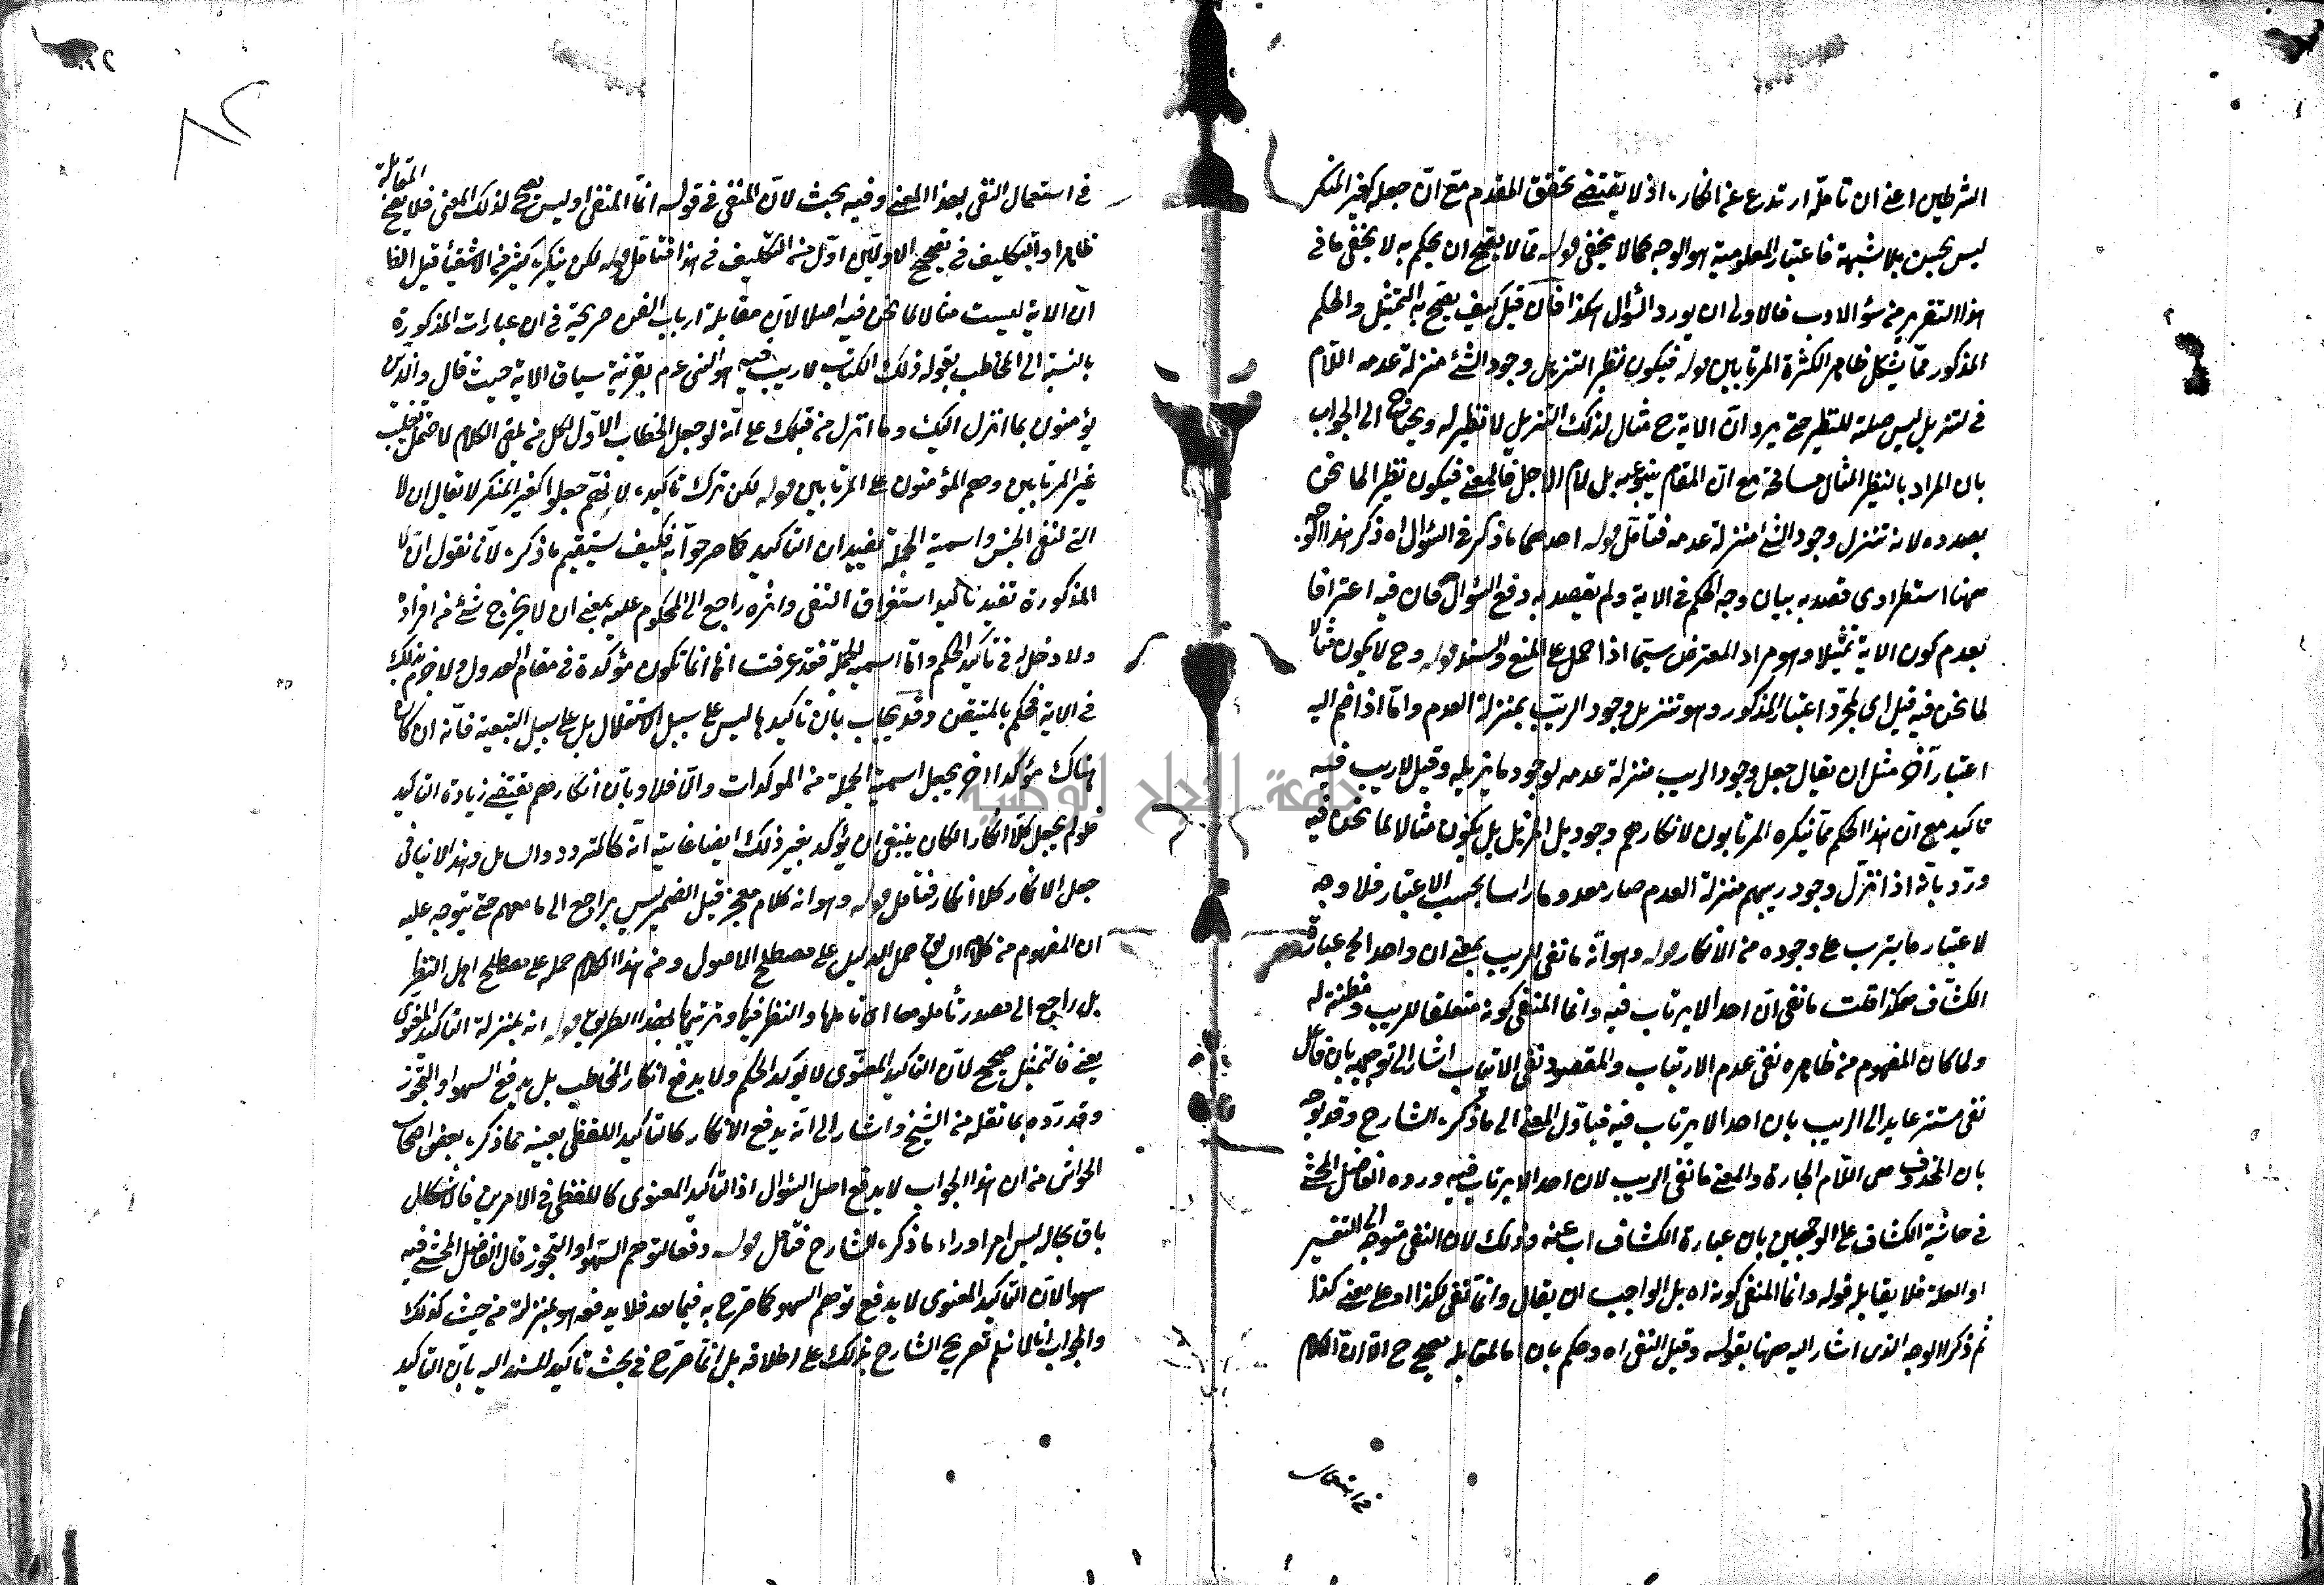 الشرطين اعنى ان تأمله ارتدع عن انكاره اذ لا يقتضى تحقق المقدم مع انّ جعله كغير المنكر
ليس بحسن بلا شبهة فاعتبار المعلومية هو الوجه كما لا يخفى قوله مما لا يصح ان يحكم به لا يخفى ما فى
هذا التقرير من سؤ الادب فالاولى ان يورد السؤال هكذا فان قيل كيف يصح به التمثيل والحكم
المذكور مما يشكل ظاهر الكثرة المرتابين قوله فيكون نظير التنزيل وجود الشئ منزلة عدمه اللام
فى لتنزيل ليس صلة للنظير حتى يرد انّ الاية ح مثال لذلك التنزيل لا نظير له ويحتاج الى الجواب
بان المراد بالنظير المثال مسامحة مع ان المقام ينبو عنه بل لام الاجل فالمعنى فيكون نظير الما نحن
بصدده لانه تنزل وجود الشئ منزلة عدمه فتأمل قوله احدهما ما ذكر فى السؤال اه ذكر هذا الوجه
ههنا استطرادى قصد به بيان وجه الحكم فى الاية ولم يقصد به دفع السؤال فان فيه اعترافا
بعدم كون الاية تمثيلا وهو مراد المعترض سيما اذا حمل على المنع والسند قوله وح لا يكون مثالا
لما نحن فيه قيل اى لمجرد اعتبار المذكور وهو تنزيل وجود الريب بمنزلة العدم وامّا اذا ضم اليه
اعتبار آخر مثل ان يقال جعل وجود الريب منزلة عدمه لوجود ما يزيله وقيل لا ريب فيه
تأكيد مع انّ هذا الحكم مما ينكره المرتابون لانكارهم وجود بل المزيل بل يكون مثالا لما نحن فيه
وردّ بانه اذا نزل وجود ريبهم منزلة العدم صار معدوما راسا بحسب الاعتبار فلا وجه
لاعتبار ما يترتب على وجوده من الانكار قوله وهو انّه ما نفى الريب بمعنى ان واحدا الخ عبارة
الكشّاف هكذا قلت ما نفى انّ احدا لا يرتاب فيه وانما المنفى كونه متعلقا للريب ومظنة له
ولما كان المفهوم من ظاهره نفى عدم الارتياب والمقصود نفى الارتياب اشار الى توجيهه بان فاعل
نفى مستتر عايد الى الريب بان احدا لا يرتاب فيه فيأول المعنى الى ما ذكره الشارح وقد يوجه
بان المحذوف هى اللام الجارة والمعنى ما نفى الريب لان احدا لا يرتاب فيه ورده الفاضل المحشى
فى حاشية الكشاف على الوجهين بان عبارة الكشاف اب عنه وذلك لان النفى متوجه الى التفسير
او العلة فلا يقابله قوله وانما المنفى كونه اه بل الواجب ان يقال وانما نفى لكذا او على معنى كذا
ثم ذكر الوجه الذى اشار اليه ههنا بقوله وقيل النفى اه وحكم بان المقابلة صحيح ح الا ان الكلام
فى استعمال
فى استعمال النفى بهذا المعنى وفيه بحث لانّ المنفى فى قوله انّما المنفى او ليس بصحيح لذلك المعنى فلا يصح المقابلة
ظاهرا والتكليف فى تصحيح الاولين اول من التكليف فى هذا فتأمل قوله لكن ينكره كثير من الاشقيأ قيل الفا
انّ الاية ليست مثالا لما نحن فيه اصلا لانّ مقابلة ارباب الفن صريحة فى ان عبارات المذكورة
بالنسبة الى المخاطب بقوله ذلك الكتاب لا ريب فيه هو النبى عم بقرينة سياق الاية حيث قال والذين
يؤمنون بما انزل اليك وما انزل من قبلك على انّه لو جعل الخطاب الاول لكل من يلقى الكلام لاحتمل تغليب
غير المرتابين وهم المؤمنون على المرتابين قوله لكن ترك تأكيده لانهم جعلوا كغير المنكر لا يقال ان لا
التى لنفى الجنس واسمية الجملة تفيدان التاكيد كما صرحوا به فكيف يستقيم ما ذكره لانّا نقول ان لا
المذكورة تفيد تاكيد استغراق النفى واثره راجع الى المحكوم عليه بمعنى ان لا يخرج شئ من افراده
ولا دخل له فى تأكيد الحكم وامّا اسمية الجملة فقد عرفت انها انما تكون مؤكدة فى مقام العدول ولا جزم بذلك
فى الاية فحكم بالمتيقن وقد يجاب بانّ تأكيدها ليس على سبيل الاستقلال بل على سبيل التبعية فانّه ان كان
هناك مؤكد اخر يجعل اسمية الجملة من المؤكدات والّا فلا وبانّ انكارهم تقتضى زيادة التاكيد
فلو لم يجعل كلا انكار لكان ينبغى ان يؤكد بغير ذلك ايضا غايته انّه كالمتردد والسايل وهذا لا ينافى
جعل الانكار كلا انكار فتأمل قوله وهو انه كلام معجز قيل الضمير ليس براجع الى ما معهم حتى يتوجه عليه
ان المفهوم من كلامه السابق حمل الدليل على مصطلح الاصول ومن هذا الكلام حمله على مصطلح اهل النظر
بل راجع الى مصدر تأملوها اى تاملها والنظر فيها وترتيبها بهذا الطريق قوله انه بمنزلة التاكيد المعنوى
يعنى فالتمثيل صحيح لانّ التاكيد المعنوى لا يؤكد الحكم ولا يدفع انكار المخاطب بل يدفع السهو او التجوز
وقد ردّه بما نقله من الشيخ واشار الى انّه يدفع الانكار كالتاكيد اللفظى بعينه مما ذكره بعض اصحاب
الحواشى من ان هذا الجواب لا يدفع اصل السؤال اذ التاكيد المعنوى كاللفظى فى الامرين فالاشكال
باق بحاله ليس امرا وراء ما ذكره الشارح فتأمل قوله دفعا لتوهم السهو او التجوز قال الفاضل المحشى فيه
سهو لانّ التاكيد المعنوى لا يدفع توهم السهو كما صرح به فيما بعد فلا يدفعه هو بمنزلة من حيث كذلك
والجواب انا لا نسلم تصريح الشارح بذلك على اطلاقه بل انما صرّح فى بحث تاكيد المسند اليه بانّ التاكيد
جامعة النجاح الوطنية